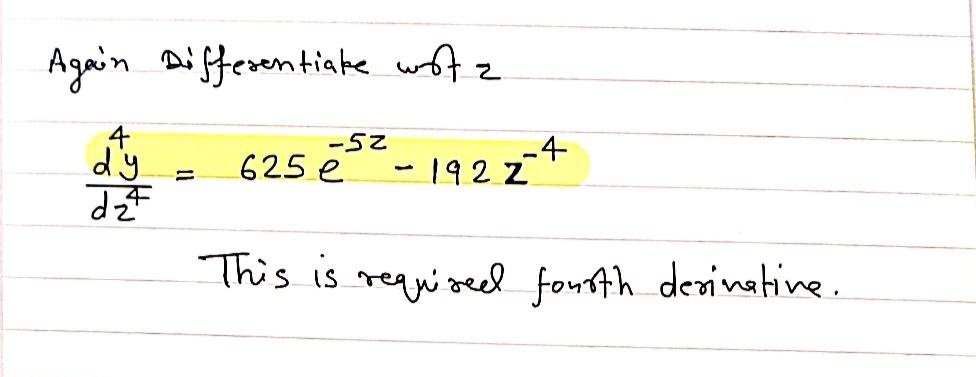 Again Differentiate wrt z
d⁴y/dz⁴ = 625 e⁻⁵ᶻ - 192 z⁻⁴
This is required fourth derivative.